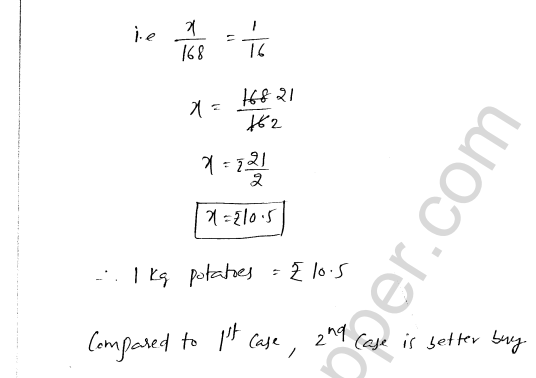 i.e x/168 = 1/16
x = 168 21 / 16 2
x = ₹ 21/2
x = ₹10.5
∴ 1 kg potatoes = ₹ 10.5
Compared to 1st Case, 2nd Case is better buy
pper.com